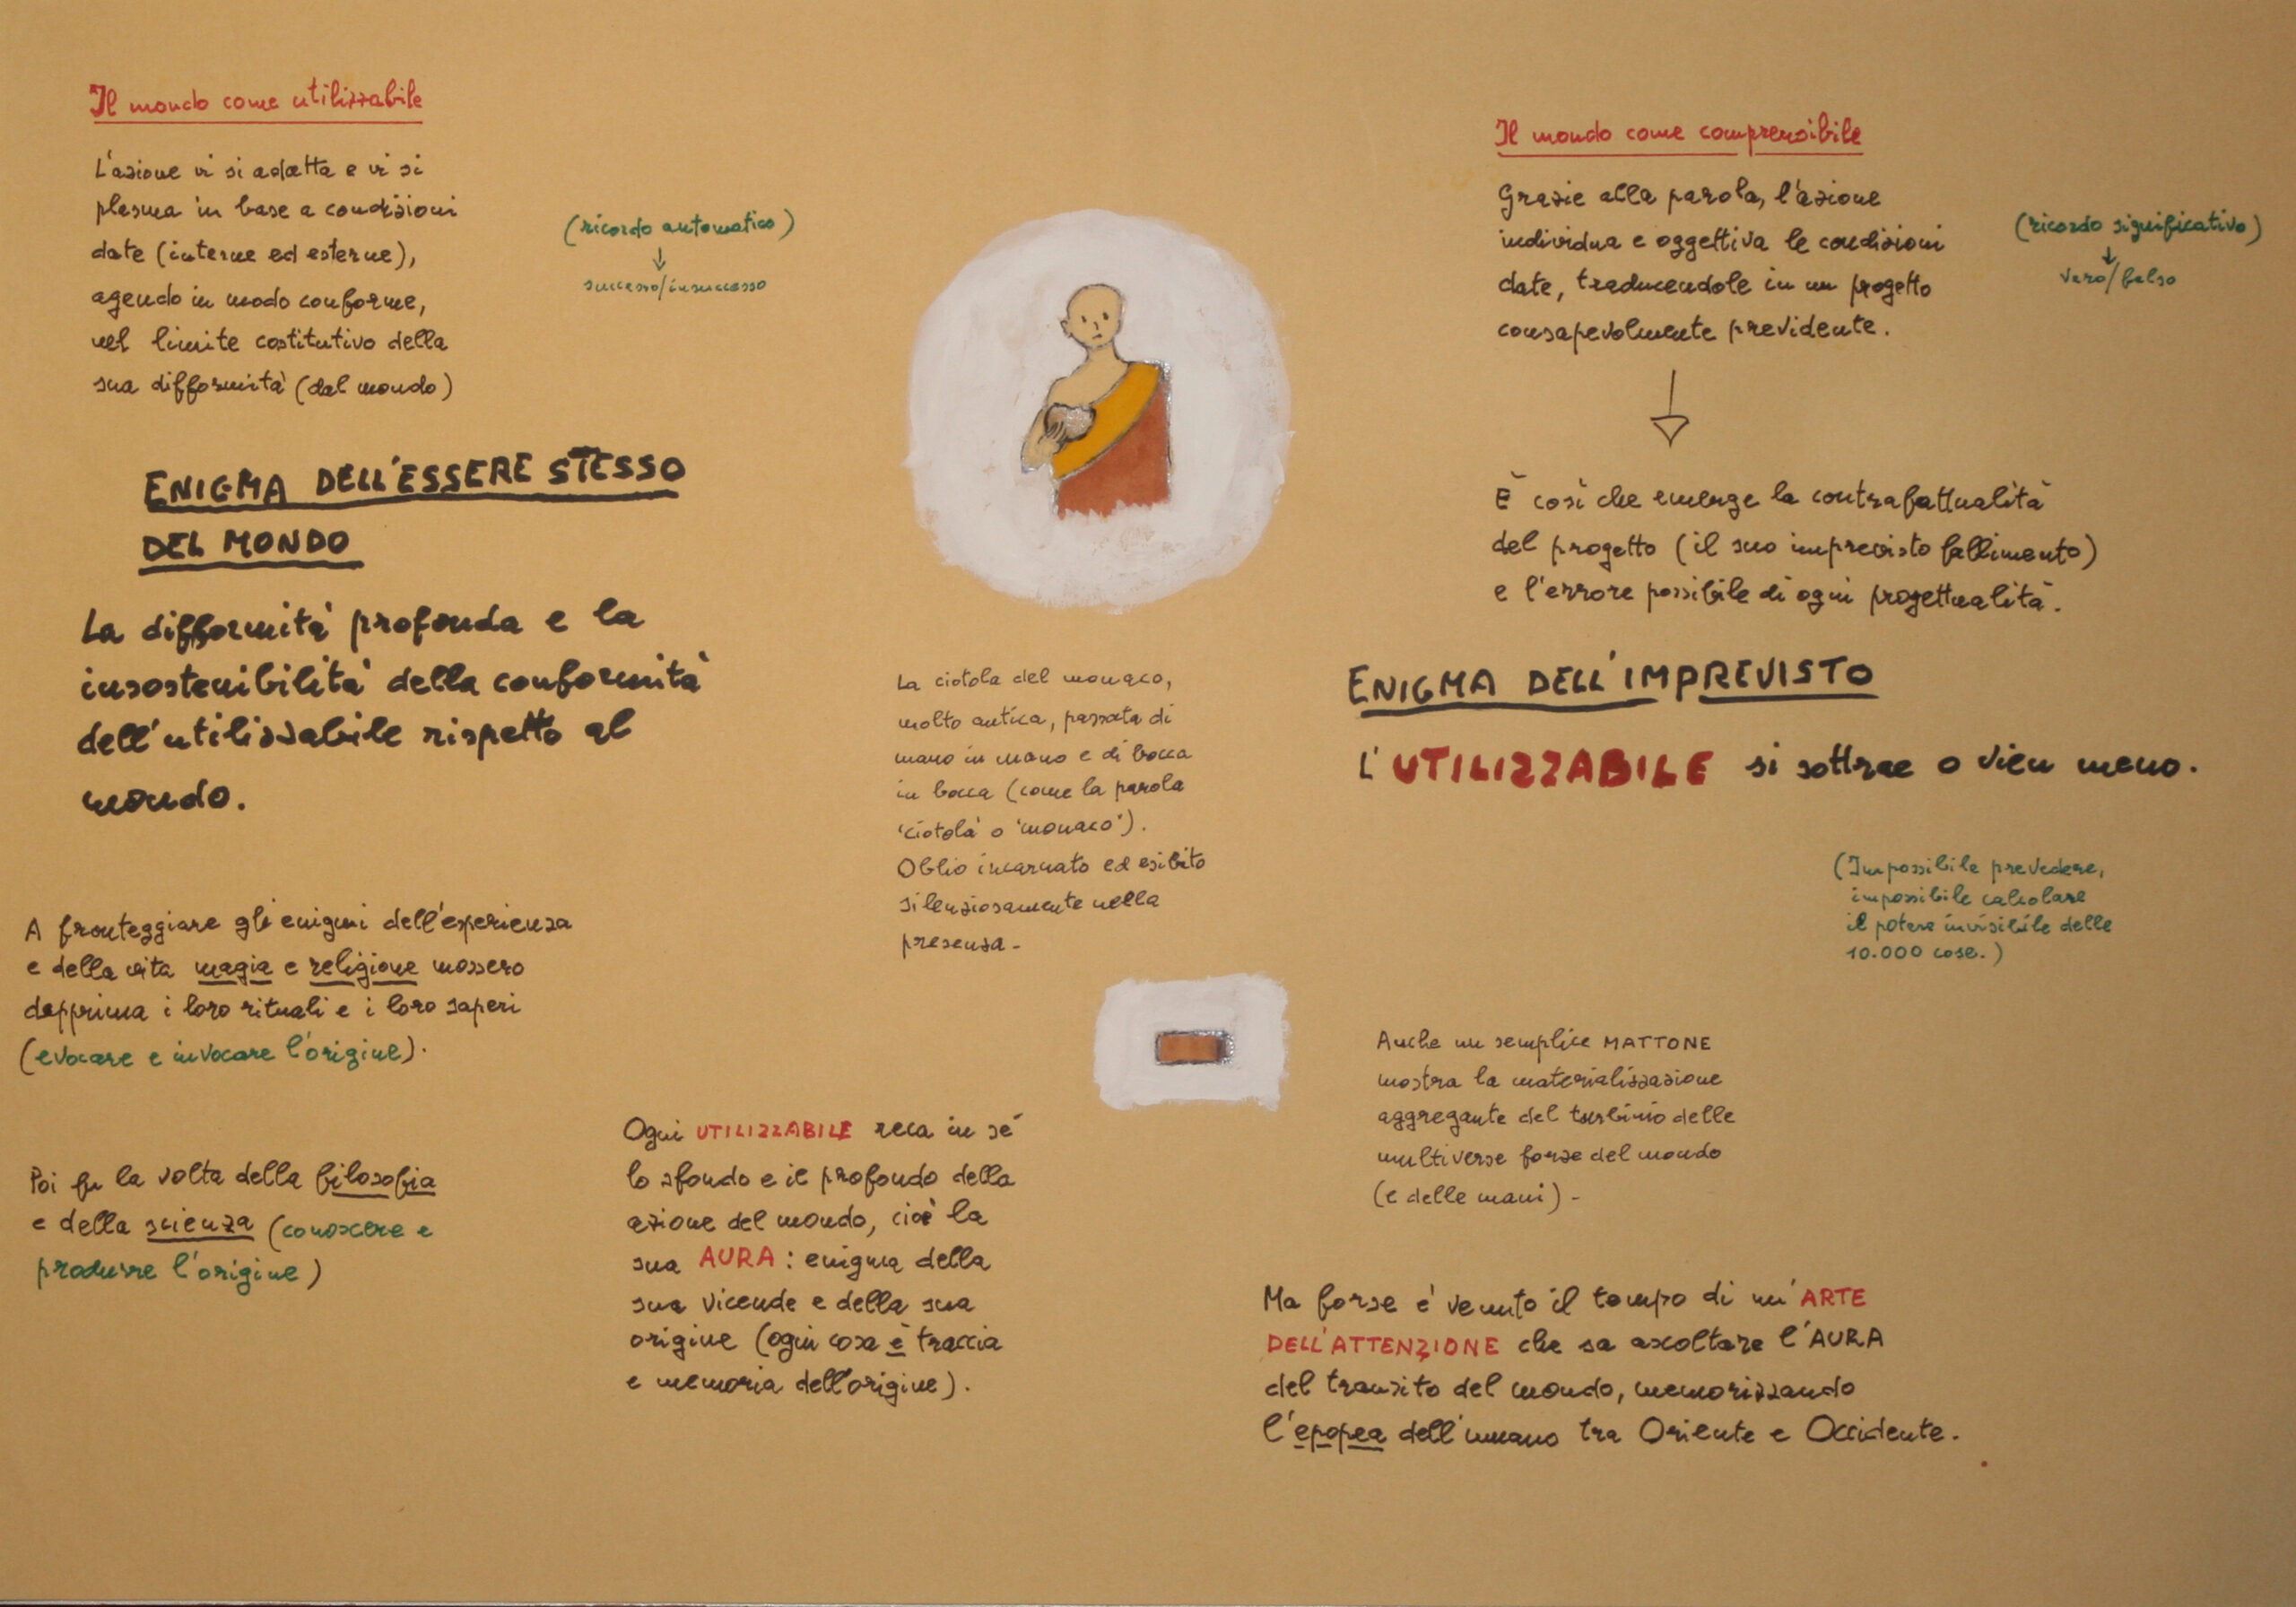 Il mondo come utilizzabile
L'azione vi si adatta e vi si
plasma in base a condizioni
date (interne ed esterne),
agendo in modo conforme,
nel limite costitutivo della
sua difformità (dal mondo)
(ricordo automatico)
↓
successo/insuccesso
ENIGMA DELL'ESSERE STESSO
DEL MONDO
La difformità profonda e la
insostenibilità della conformità
dell'utilizzabile rispetto al
mondo.
A fronteggiare gli enigmi dell'esperienza
e della vita magia e religione mossero
dapprima i loro rituali e i loro saperi
(evocare e invocare l'origine).
Poi fu la volta della filosofia
e della scienza (conoscere e
produrre l'origine)
La ciotola del monaco,
molto antica, passata di
mano in mano e di bocca
in bocca (come la parola
'ciotola' o 'monaco').
Oblio incarnato ed esibito
silenziosamente nella
presenza-
Ogni UTILIZZABILE reca in sé
lo sfondo e il profondo della
azione del mondo, cioè la
sua AURA: enigma della
sua vicende e della sua
origine (ogni cosa è traccia
e memoria dell'origine).
Il mondo come comprensibile
Grazie alla parola, l'azione
individua e oggettiva le condizioni
date, traducendole in un progetto
consapevolmente previdente.
(ricordo significativo)
↓
vero/falso
È così che emerge la contrafattualità
del progetto (il suo imprevisto fallimento)
e l'errore possibile di ogni progettualità.
ENIGMA DELL'IMPREVISTO
L'UTILIZZABILE si sottrae o vien meno.
(Impossibile prevedere,
impossibile calcolare
il potere invisibile delle
10.000 cose.)
Anche un semplice MATTONE
mostra la materializzazione
aggregante del turbinio delle
multiverse forze del mondo
(e delle mani)-
Ma forse è venuto il tempo di un'ARTE
DELL'ATTENZIONE che sa ascoltare l'AURA
del transito del mondo, memorizzando
l'epopea dell'umano tra Oriente e Occidente.